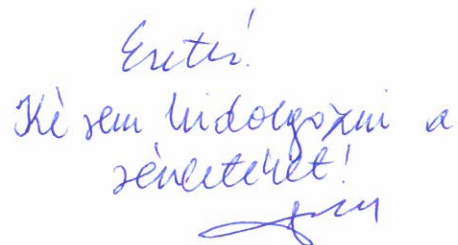 Eszter!
Kérem kidolgozni a
részleteket!